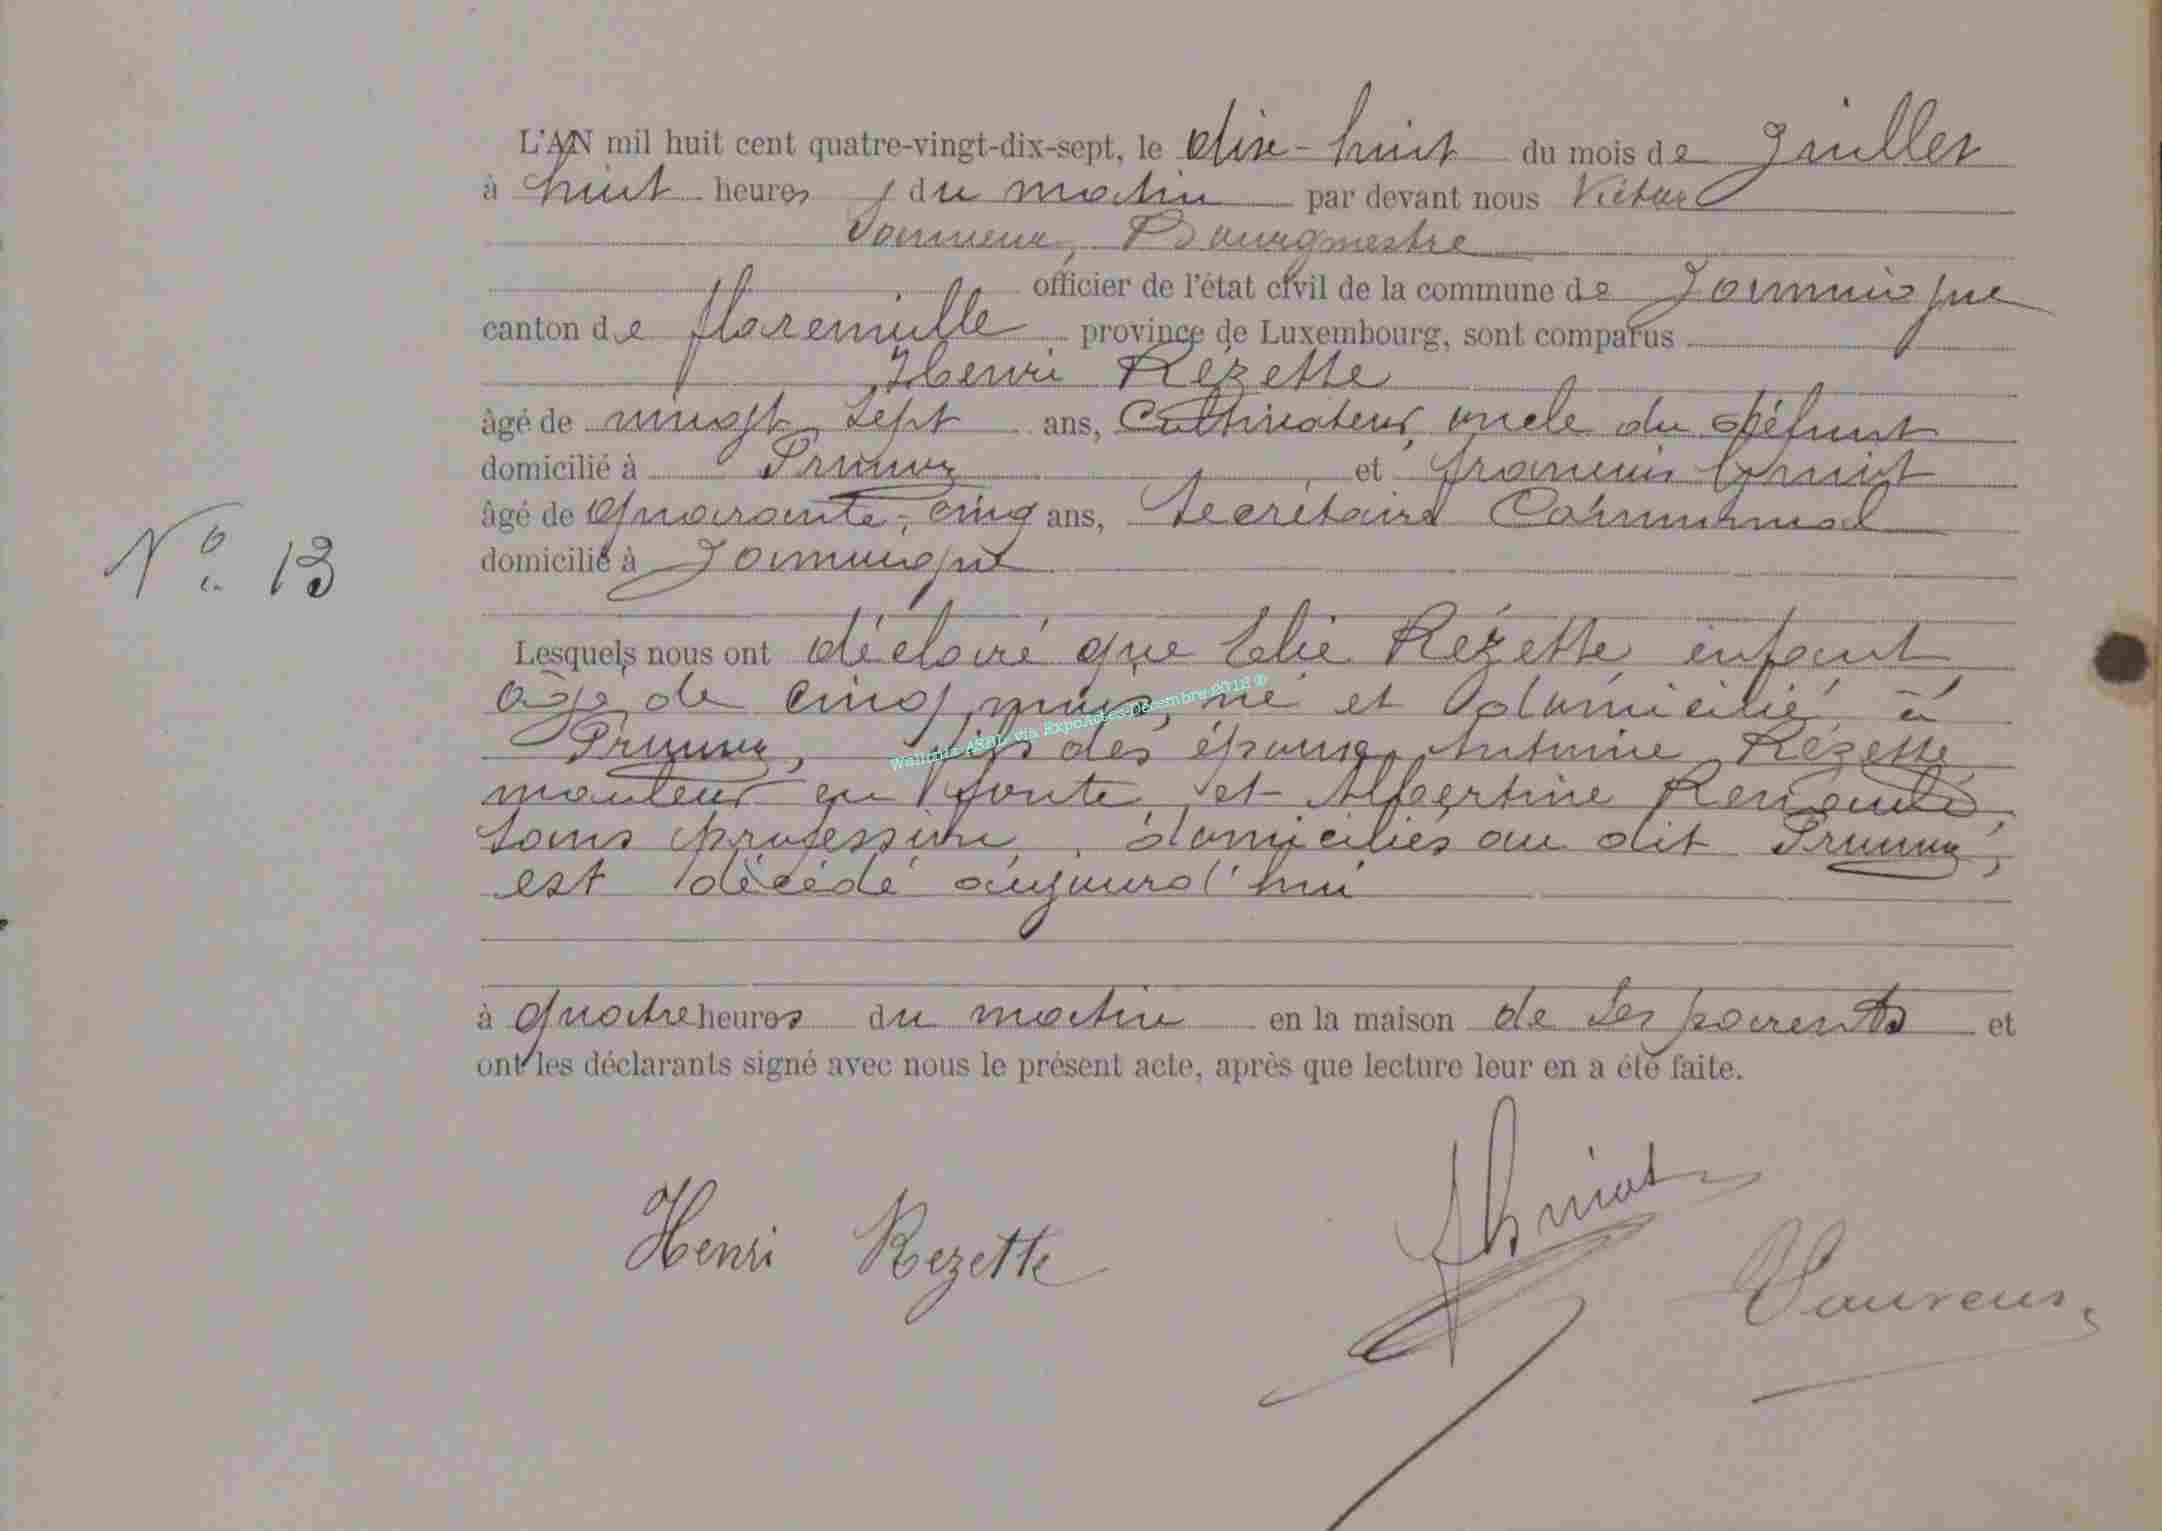 L'AN mil huit cent quatre-vingt-dix-sept, le dix-huit du mois de Juillet
à huit heures du matin par devant nous Victor
Bourgmestre
officier de l'état civil de la commune de Jamoigne
canton de florenville province de Luxembourg, sont comparus
Henri Rézette
âgé de vingt sept ans, Cultivateur, oncle du défunt
domicilié à Prouvy et francois
âgé de quarante-cinq ans, Secrétaire Communal
domicilié à Jamoigne
N° 13
Lesquels nous ont déclaré que Elie Rézette enfant
âgé de cinq mois, né et domicilié à
Prouvy, fils des époux Antoine Rézette,
mouleur en fonte et Albertine Renauld,
sans profession, domiciliés au dit Prouvy,
est décédé aujourd'hui
à quatre heures du matin en la maison de ses parents et
ont les déclarants signé avec nous le présent acte, après que lecture leur en a été faite.
Henri Rezette
Wallonia ASBL via ExpoActes-Décembre 2012 ©